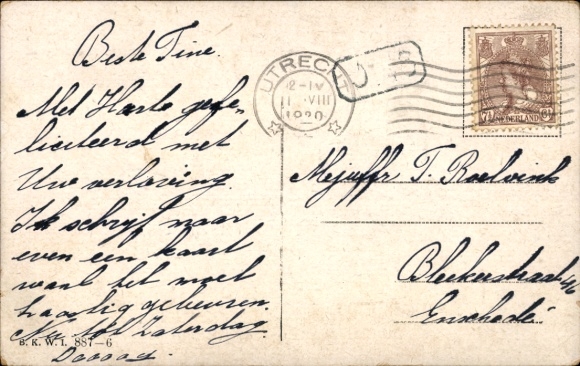 Beste Tine.
Met Harte gefe-
liciteerd met
Uw verloving.
Ik schrijf maar
even een kaart
want het moet
haastig gebeuren.
Nu tot Zaterdag.
B. K. W. I. 887-6
UTRECHT
VIII
1920
7½ NEDERLAND
Mejuffr T. Roelvink
Bleekerstraat
Enschedé